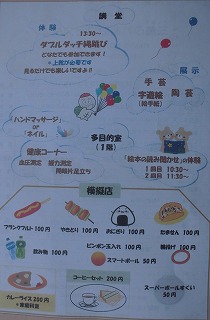 講堂
体験
13:30~
ダブルダッチ縄跳び
どなたでも参加できます!
*上靴が必要です
見るだけでも楽しいですよ!
展示
手芸
字遊絵
(絵手紙)
陶芸
「ハンドマッサージ」
or
「ネイル」
多目的室
(1階)
健康コーナー
血圧測定 握力測定
開眼片足立ち
「絵本の読み聞かせ」の体験
1回目 10:30~
2回目 11:30~
模擬店
フランクフルト 100円
やきとり 100円
おにぎり 100円
たません 100円
飲み物 100円
ピンポン玉入れ 100円
輪投げ 100円
スマートボール 50円
カレーライス 200円
コーヒーセット 200円
スーパーボールすくい
50円